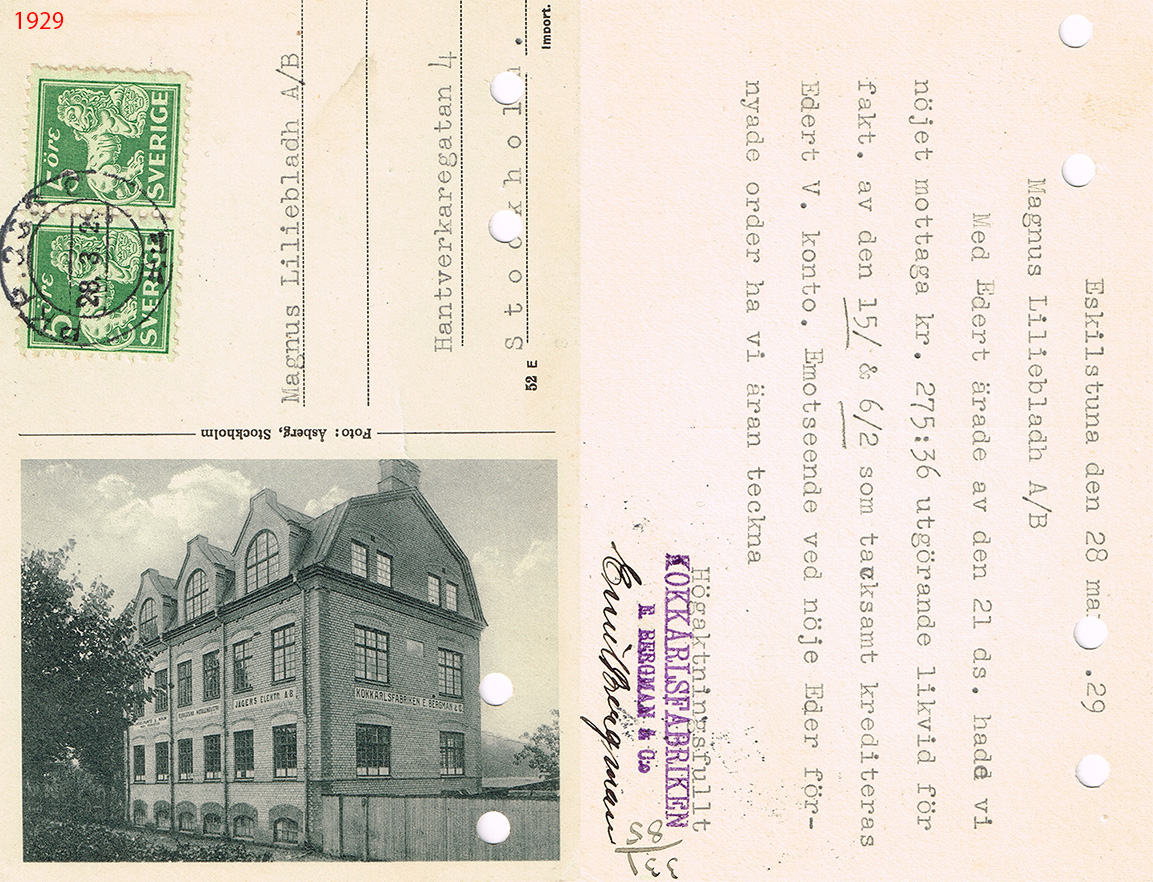 1929
5 öre
SVERIGE
5 öre
SVERIGE
28.3.29
Magnus Liliebladh A/B
Hantverkaregatan 4
Stockholm.
52 E
Import.
Foto: Åsberg, Stockholm
JÄGERS ELEKTR. A.B.
KOKKÄRLSFABRIKEN E. BERGMAN & Co
Eskilstuna den 28 mar .29
Magnus Liliebladh A/B
Med Edert ärade av den 21 ds. hade vi
nöjet mottaga kr. 275:36 utgörande likvid för
fakt. av den 15/ & 6/2 som tacksamt krediteras
Edert V. konto. Emotseende ved nöje Eder för-
nyade order ha vi äran teckna
Högaktningsfullt
KOKKÄRLSFABRIKEN
E. BERGMAN & C:o
Emil Bergman